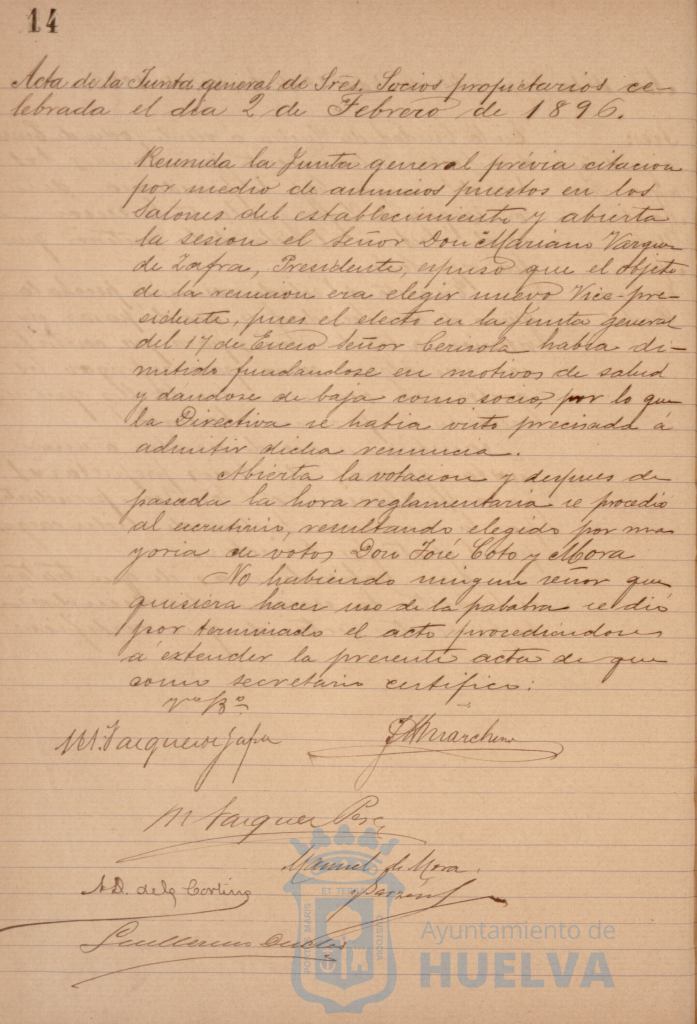 14
Acta de la Junta general de Sres. Socios propietarios ce-
lebrada el dia 2 de Febrero de 1896.
Reunida la Junta general prévia citacion
por medio de anuncios puestos en los
Salones del establecimiento y abierta
la sesion el Señor Don Mariano Vazquez
de Zafra, Presidente, espuso que el objeto
de la reunion era elegir nuevo Vice-pre-
sidente, pues el electo en la Junta general
del 17 de Enero Señor Cerisola habia di-
mitido fundandose en motivos de salud
y dandose de baja como socio, por lo que
la Directiva se habia visto precisada á
admitir dicha renuncia.
Abierta la votacion y despues de
pasada la hora reglamentaria se procedió
al escrutinio, resultando elegido por ma
yoria de votos Don José Coto y Mora
No habiendo ningun señor que
quisiera hacer uso de la palabra se dió
por terminado el acto procediendose
á extender la presente acta de que
como secretario certifico:
Vº Bº
M. Vazquez de Zafra
Marchena
M Vazquez Perez
Manuel de Mora
A.D. de la Cortina
Guillermo
PORTUS MARIS
ET TERRAE
CUSTODIA
Ayuntamiento de
HUELVA